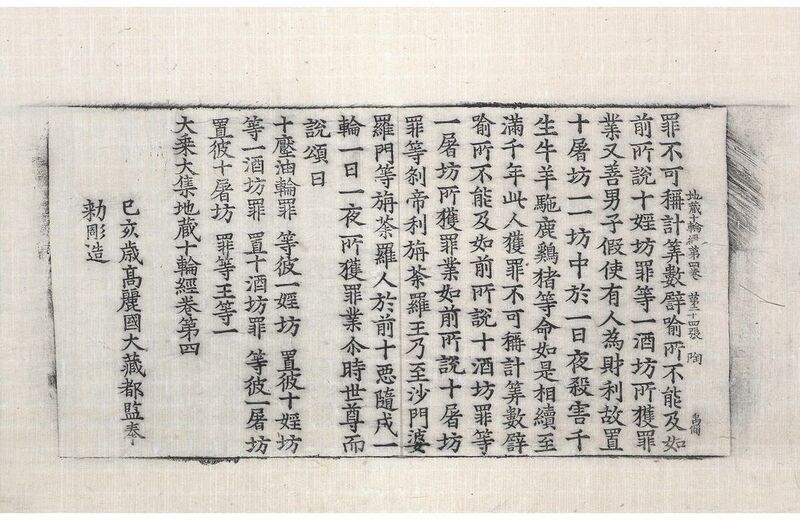 罪不可稱計筭數譬喩所不能及如
地藏十輪經第四卷 第二十四張 陶
前所說十婬坊罪等一酒坊所獲罪
業又善男子假使有人爲財利故置
十屠坊一一坊中於一日夜殺害千
生牛羊駞鹿鷄猪等命如是相續至
滿千年此人獲罪不可稱計筭數譬
喩所不能及如前所說十酒坊罪等
一屠坊所獲罪業如前所說十屠坊
罪等剎帝利旃荼羅王乃至沙門婆
羅門等旃荼羅人於前十惡隨成一
輪一日一夜所獲罪業尒時世尊而
說頌曰
十壓油輪罪 等彼一婬坊 置彼十婬坊
等一酒坊罪 置十酒坊罪 等彼一屠坊
置彼十屠坊 罪等王等一
大乘大集地藏十輪經卷第四
己亥歲高麗國大藏都監奉
勅彫造